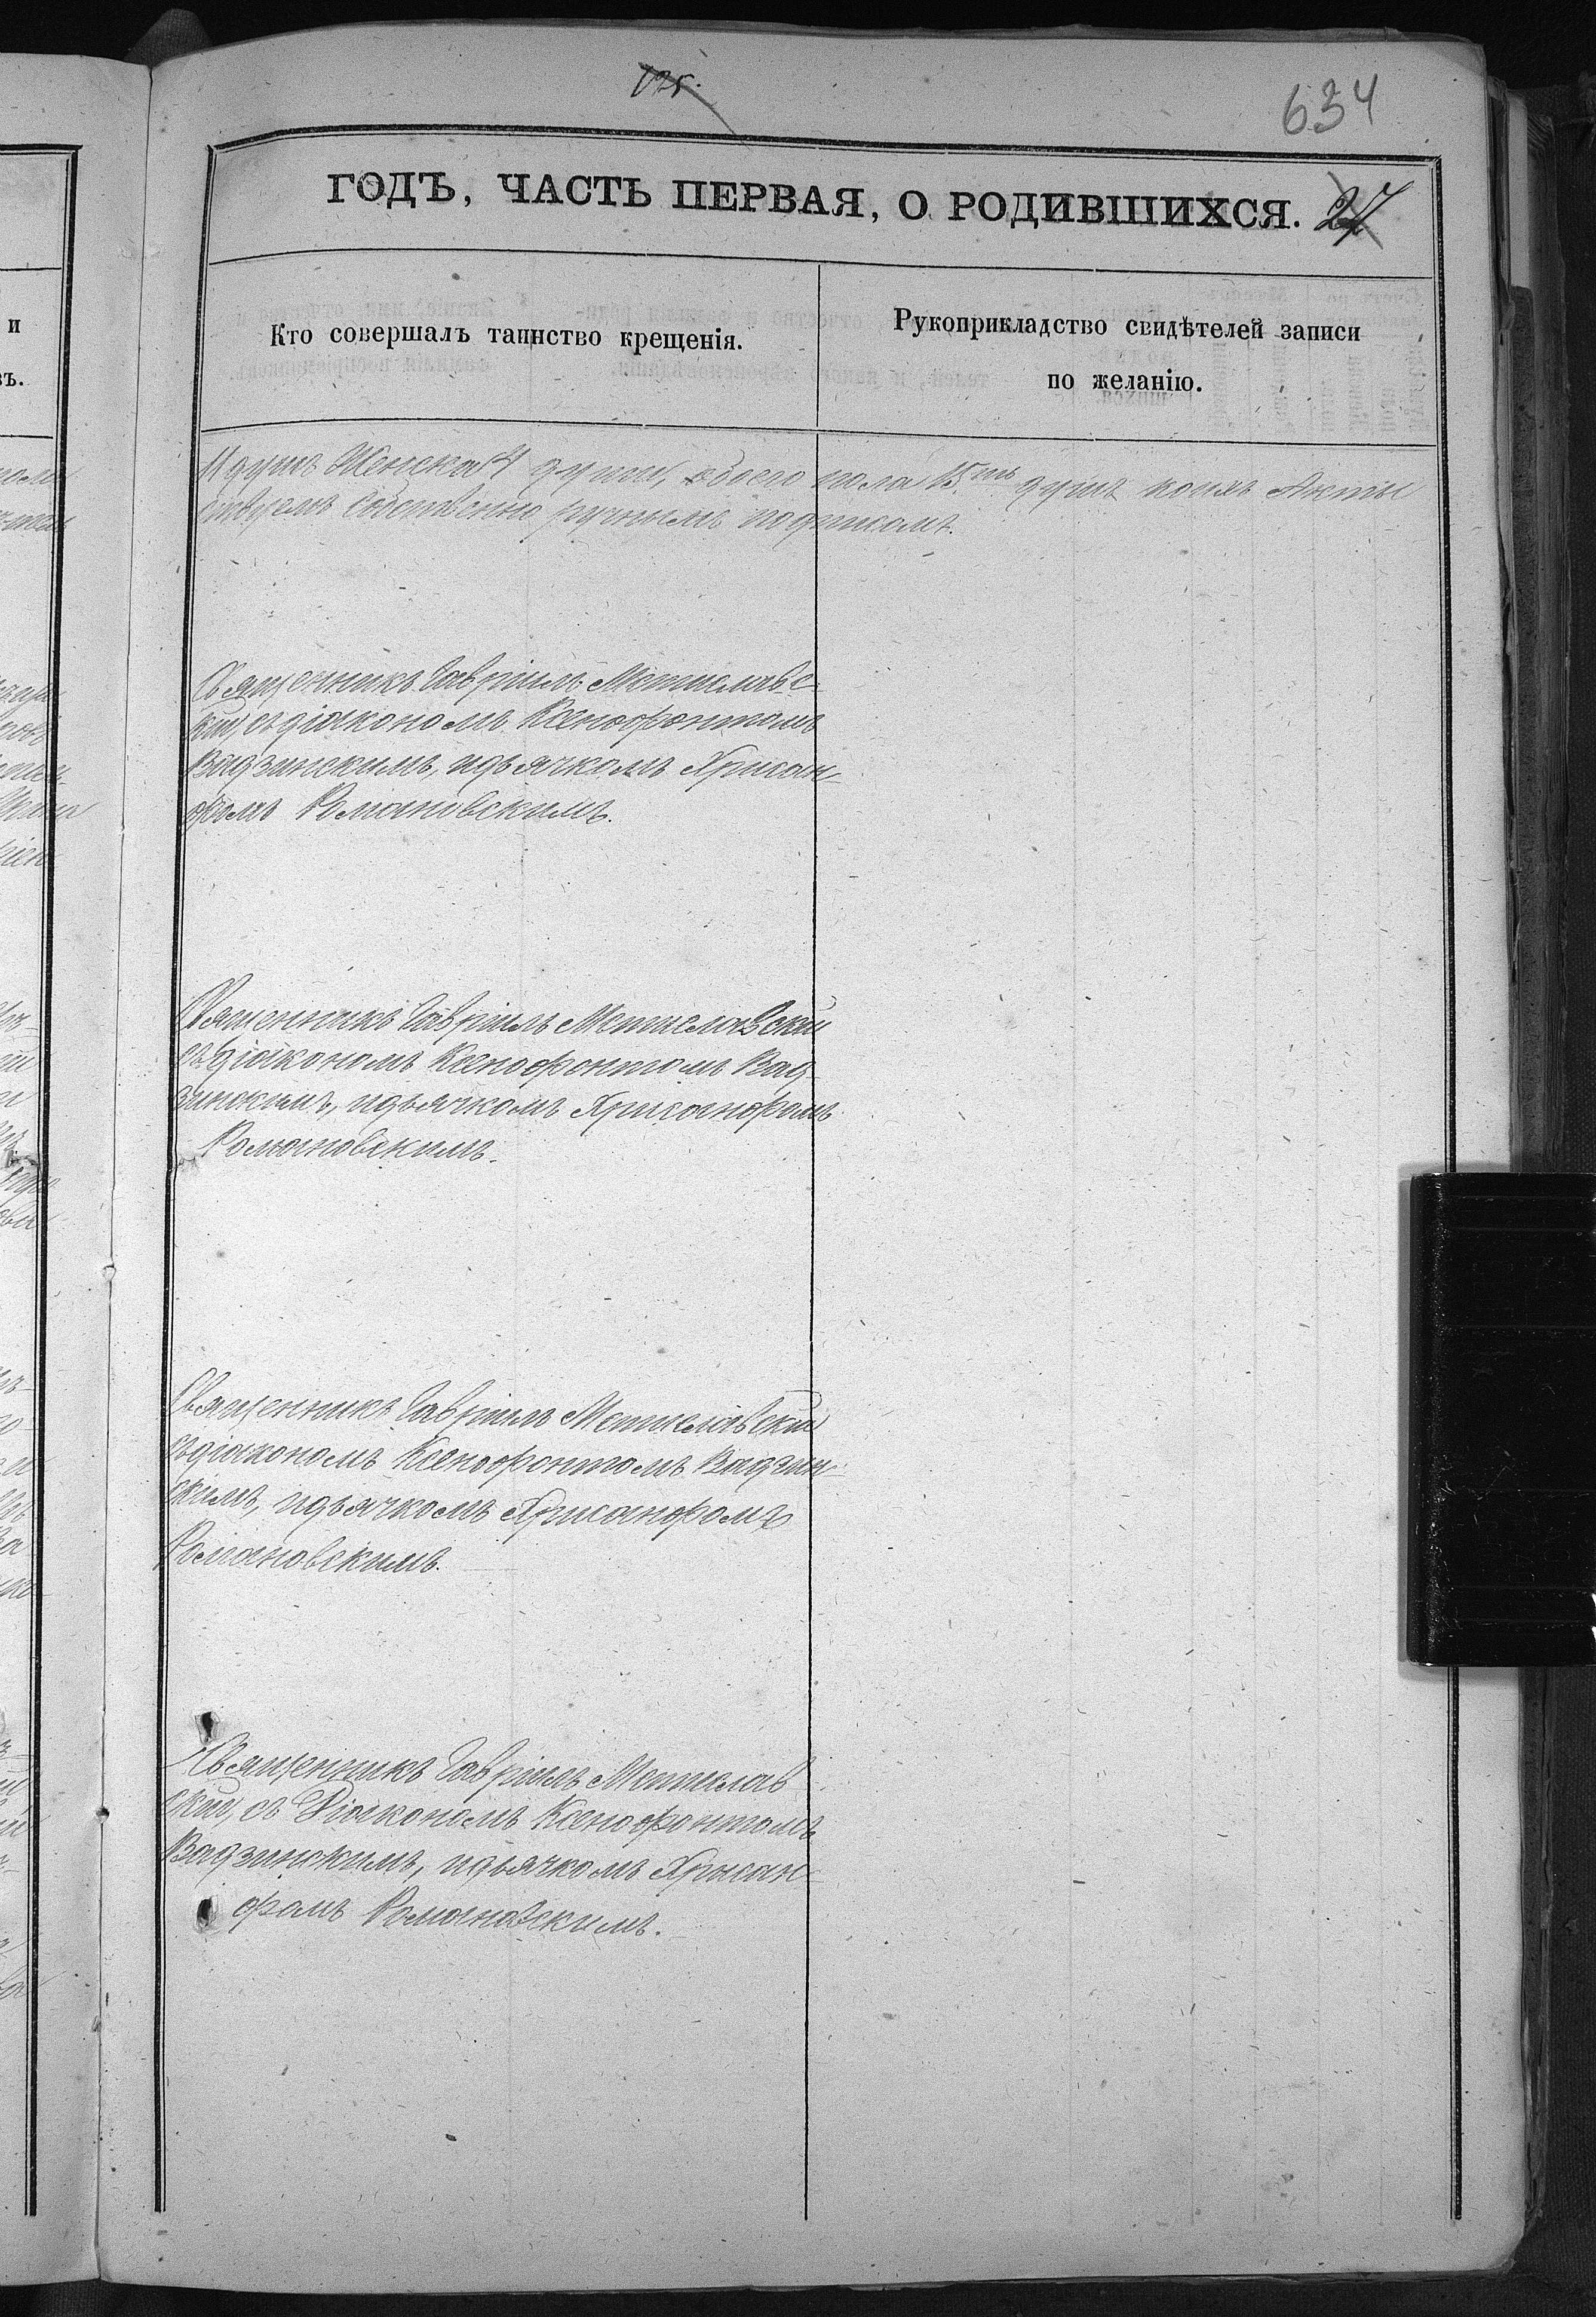 634
ГОДЪ, ЧАСТЬ ПЕРВАЯ, О РОДИВШИХСЯ. 27
Кто совершалъ таинство крещенія.
Рукоприкладство свидѣтелей записи
по желанію.
11 душъ Женска 4 души, обоего пола 15.ть душъ коихъ Акты
собственно ручнымъ подписомъ.
Священникъ Гавріилъ Мстиславс-
кій, съ діакономъ Ксенофонтомъ
Вадзинскимъ, идьячкомъ Хрисан-
фомъ Романовскимъ.
Священникъ Гавріилъ Мстиславскій
съ діакономъ Ксенофонтомъ Вад-
зинскимъ, идьячкомъ Хрисанфомъ
Романовскимъ.
Священникъ Гавріилъ Мстиславскій
съ діакономъ Ксенофонтомъ Вадзин-
скимъ, идьячкомъ Хрисанфомъ
Романовскимъ.
Священникъ Гавріилъ Мстислав
скій, съ Діакономъ Ксенофонтомъ
Вадзинскимъ, идьячкомъ Хрисан-
фомъ Романовскимъ.